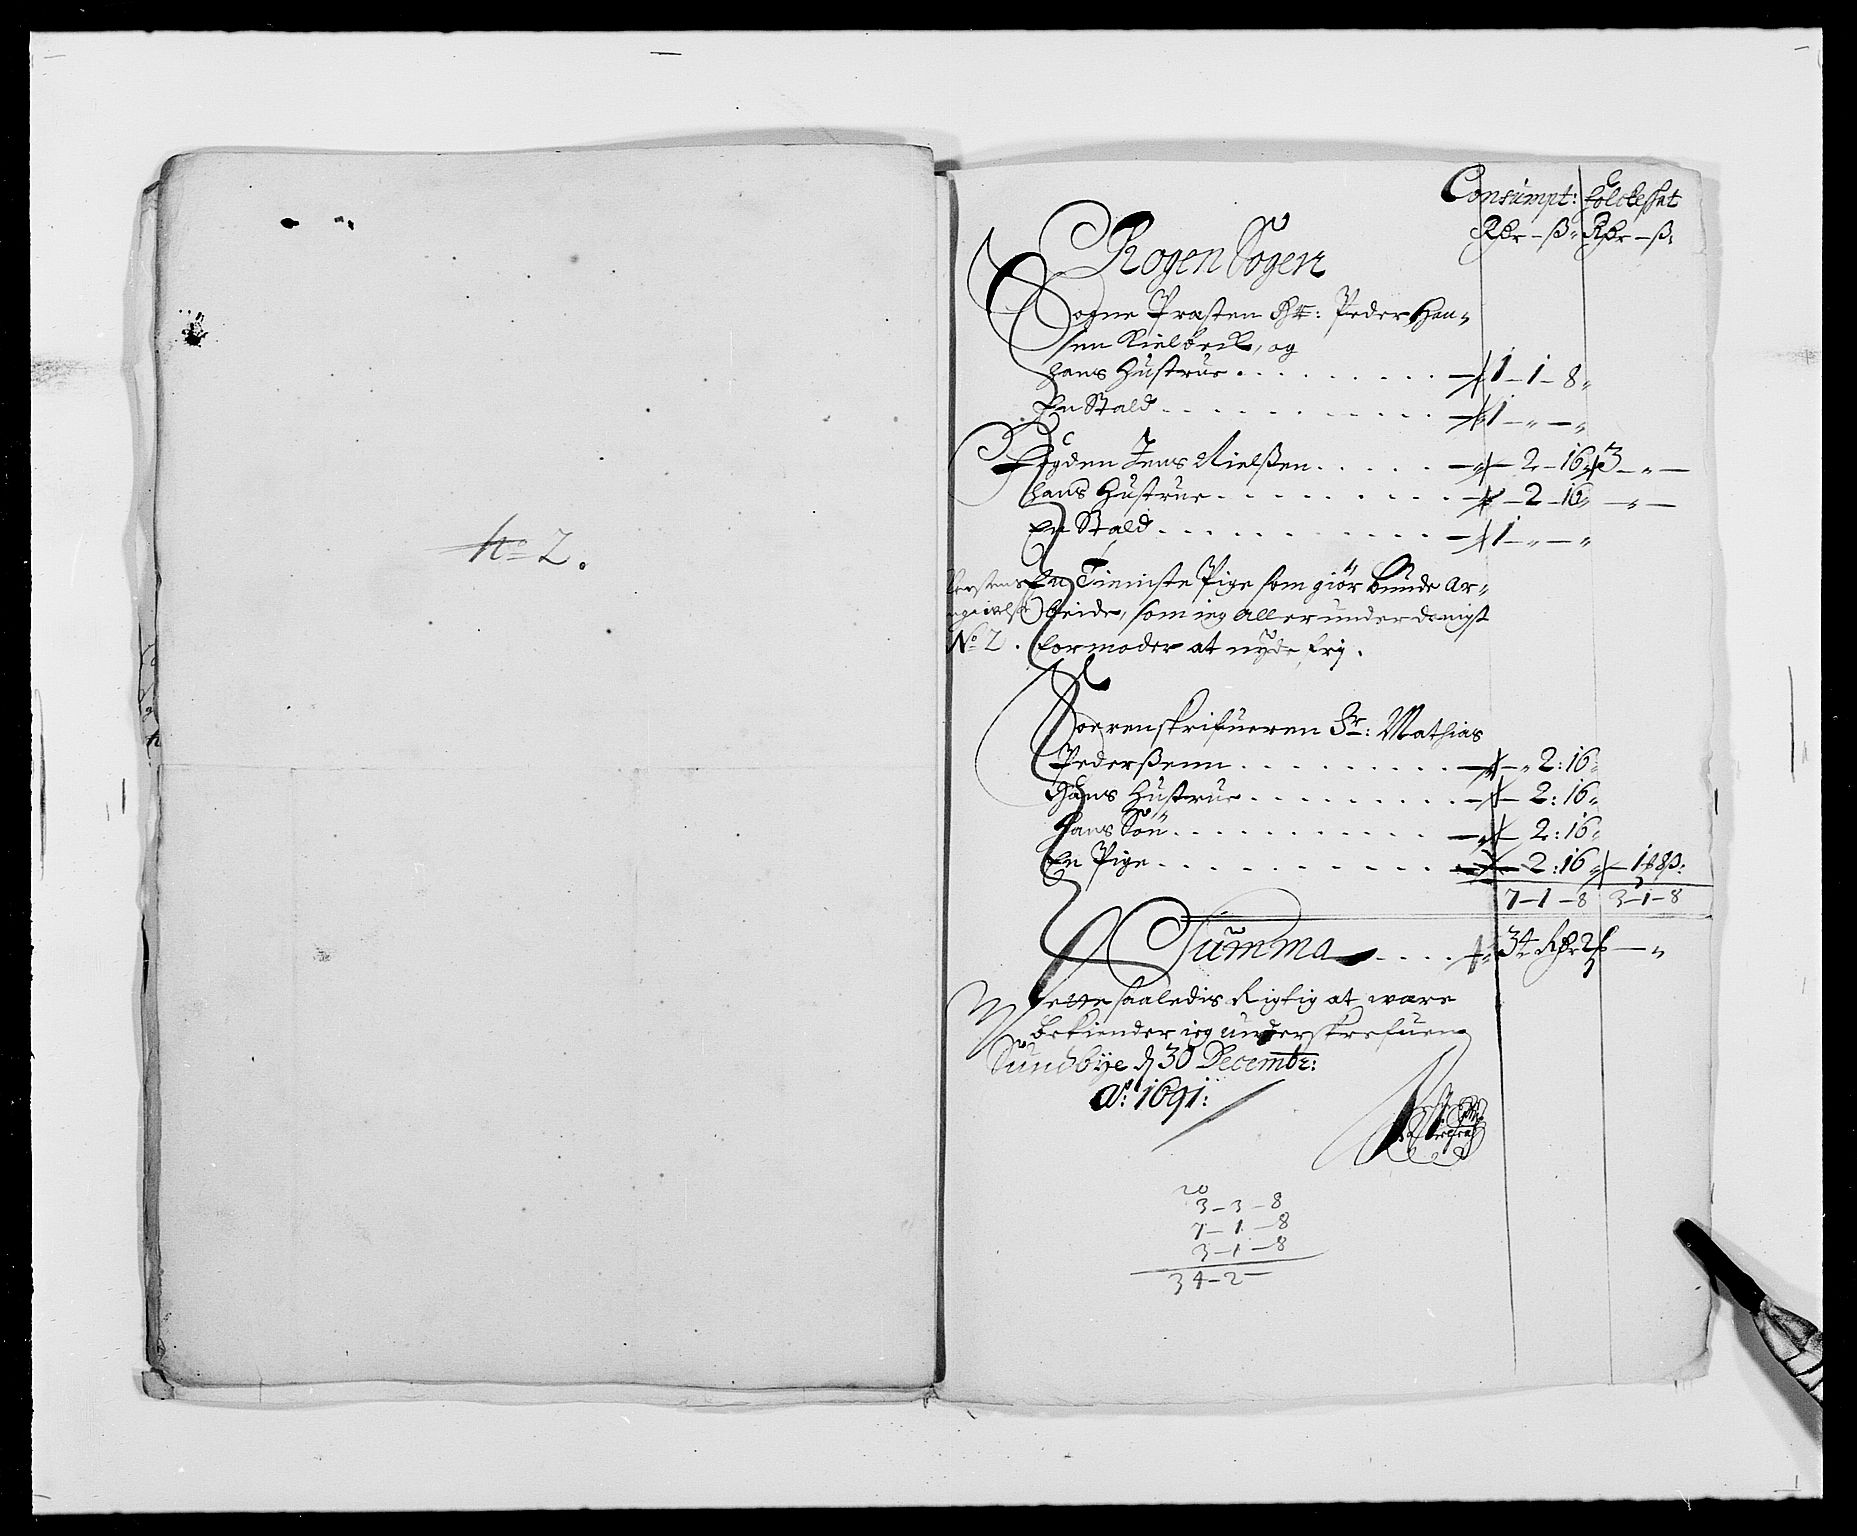 No 2.
Consumpt: folckeskat
Rdr – ß Rdr – ß
Rogen Sogen
Sogne Præsten Hr: Peder Han-
sen Kielbeck, og
hans Hustrue . . . . . . . . . 1 – 1 – 8
En Stald . . . . . . . . . . . 1 – „ – „
Fogden Jens Nielßen . . . . . . – 2 – 16 3 – „ –
hans Hustrue . . . . . . . . . – 2 – 16 – „ –
En Stald . . . . . . . . . . . 1 – „ – „
En Tieniste Pige som giør bunde ar-
beide, som ieg allerunderdanigst
No 2. formoder at nyde fry.
Soerenskrifueren Sr: Mathias
Pederßenn . . . . . . . . . – „ 2:16
Hans Hustrue . . . . . . . . . – 2:16
Hans Søn . . . . . . . . . . . – 2:16
En Pige . . . . . . . . . . . – 2:16 – 1 8ß:
7 – 1 – 8 3 – 1 – 8
Summa . . . . 34 Rdr 2 – „
Dette saaledis Rigtig at være
bekiender ieg underskrefuen
Sundbye d 30 Decembr:
Ao: 1691:
20
3 – 3 – 8
7 – 1 – 8
3 – 1 – 8
34 – 2 –